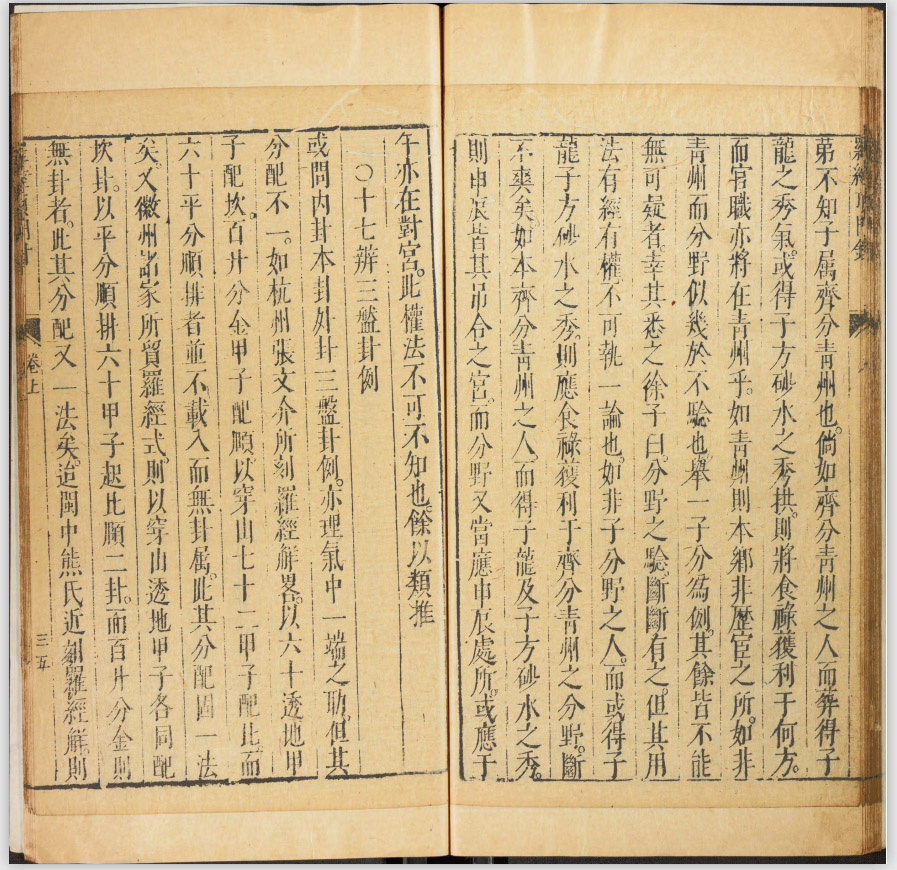 弟不知子属齊分青州也。倘如齊分青州之人而葬得子
龍之秀氣。或得子方砂水之秀拱。則將食祿獲利于何方。
而官職亦將在青州乎。如青州則本鄉非歷宦之所。如非
青州而分野似幾於不驗也。舉一子分為例。其餘皆不能
無可疑者。幸其悉之。徐子曰。分野之驗。斷斷有之。但其用
法有經有權。不可執一論也。如非子分野之人。而或得子
龍子方砂水之秀。則應食祿獲利于齊分青州之分野。斷
不爽矣。如本齊分青州之人。而得子龍及子方砂水之秀。
則申辰皆其吊合之宮。而分野又當應申辰處所。或應于
午亦在對宮。此權法不可不知也。餘以類推
○十七辨三盤卦例
或問內卦本卦外卦三盤卦例。亦理氣中一端之助。但其
分配不一。如杭州張文介所刻羅經解畧。以六十透地甲
子配坎。百廿分金甲子配順。以穿山七十二甲子配比。而
六十平分順排者並不載入而無卦属。此其分配固一法
矣。又徽州諸家所貿羅經式。則以穿山透地甲子各同配
坎卦。以平分順排六十甲子起比順二卦。而百廿分金則
無卦者。此其分配又一法矣。迨閩中熊氏近刻羅經解。則
卷上
三五